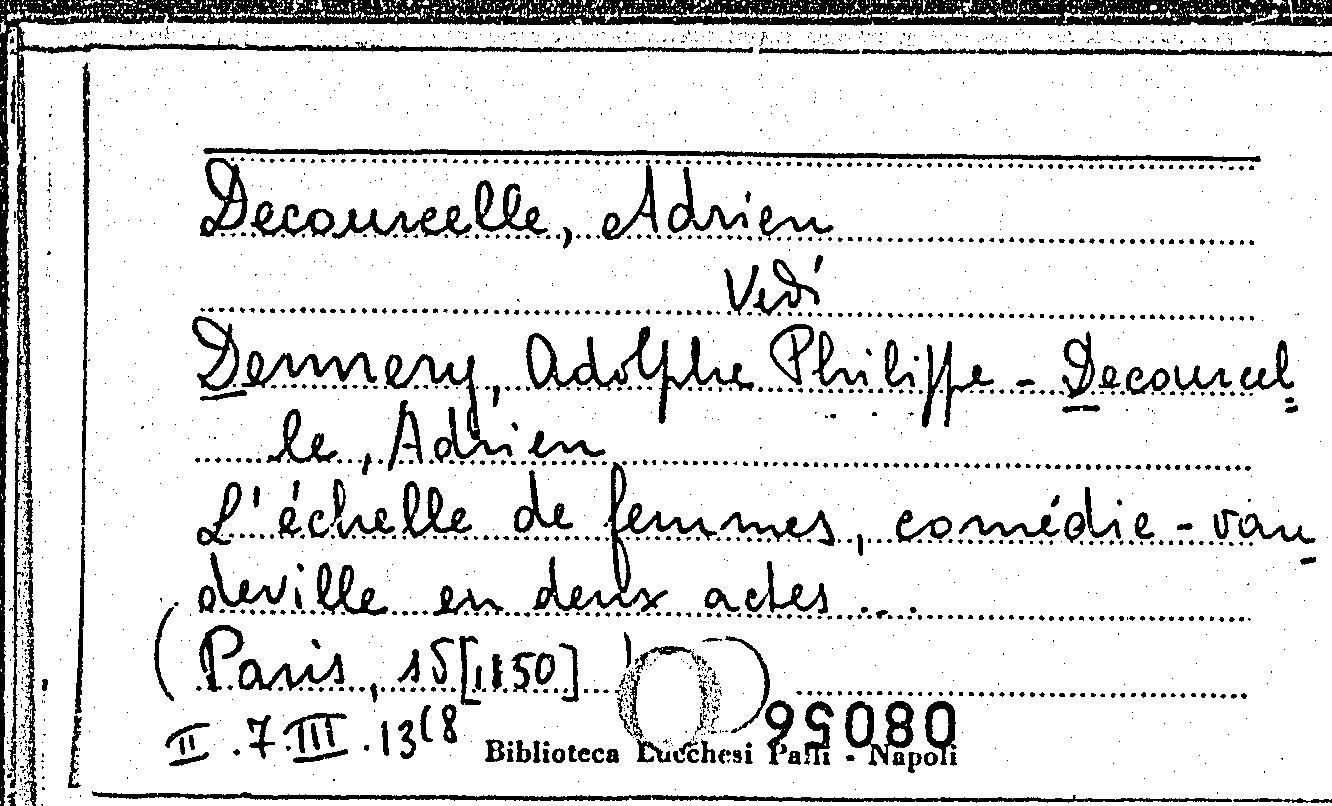 Decourcelle, Adrien
Vedi
Dennery, Adolphe Philippe - Decourcel
le, Adrien
L'échelle de femmes, comédie - vau
deville en deux actes...
(Paris, [1850] )
II . 7. III . 13(8
08056
Biblioteca Lucchesi Palli - Napoli